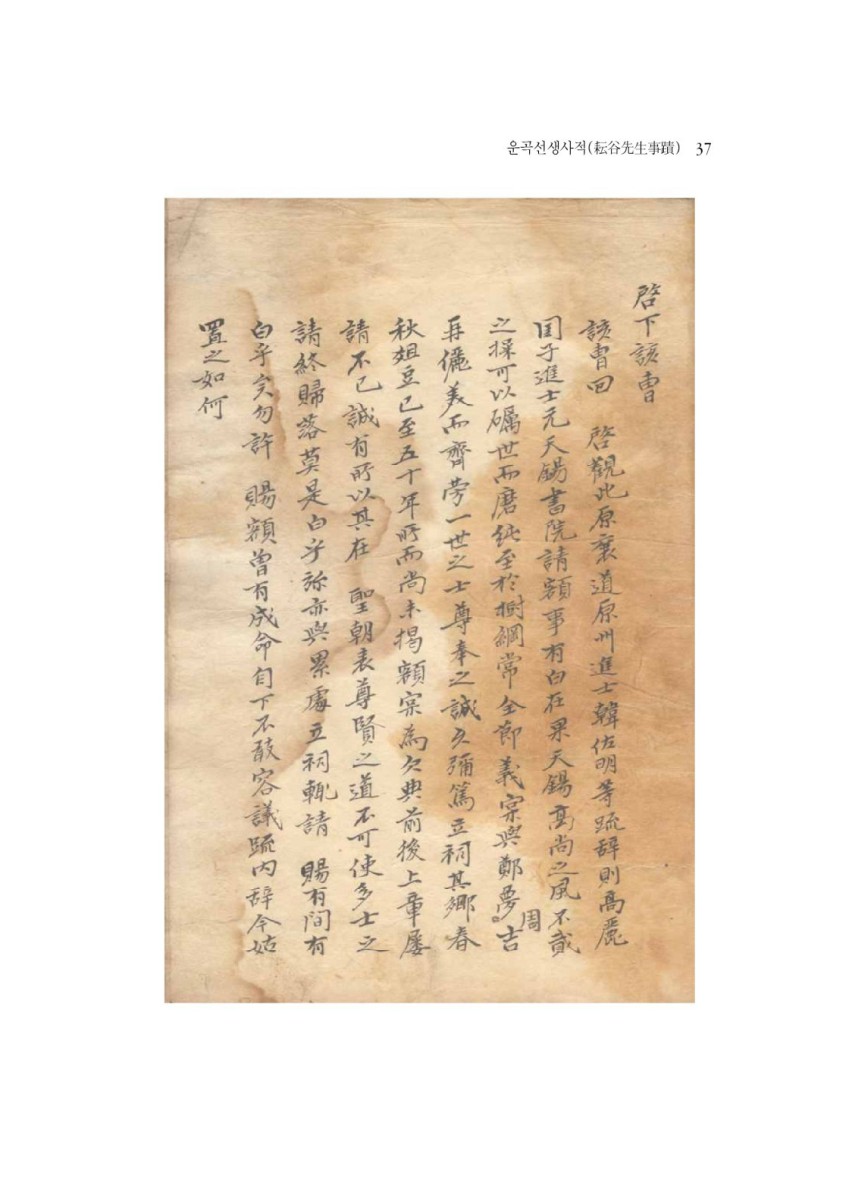 운곡선생사적(耘谷先生事蹟) 37
啓下該曹
該曹回 啓觀此原襄道原州進士韓佐明等疏辞則高麗
国子進士元天錫書院請額事有白在果天錫高尙之風不貳
之操可以礪世而磨鈍至於樹綱常全節義宲與鄭夢周吉
再儷美而齊芳一世之士尊奉之誠久彌篤立祠其鄉春
秋俎豆已至五十年所而尚未揭額宲為欠典前後上章屡
請不已誠有所以其在 聖朝表尊賢之道不可使多士之
請終歸落莫是白乎㫆亦與累處立祠輒請 賜有間有
白乎矣勿許 賜額曾有成命自下不敢容議疏內辞令姑
置之如何